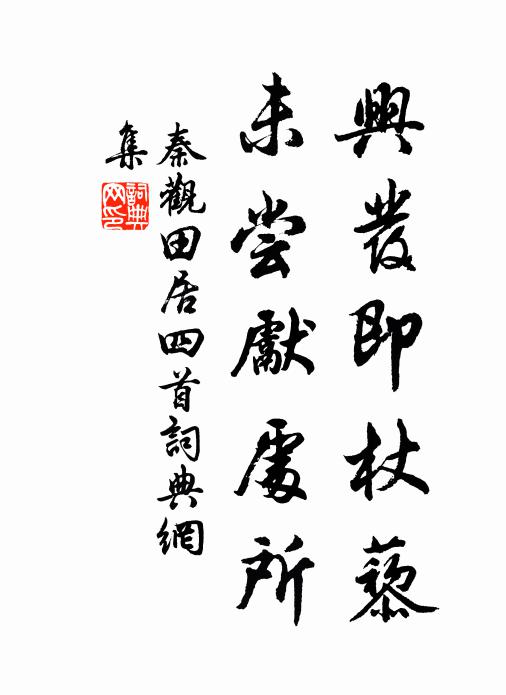 興發即杖藜
未嘗獻處所
秦觀田居四首詞典網
集
詞典
网印